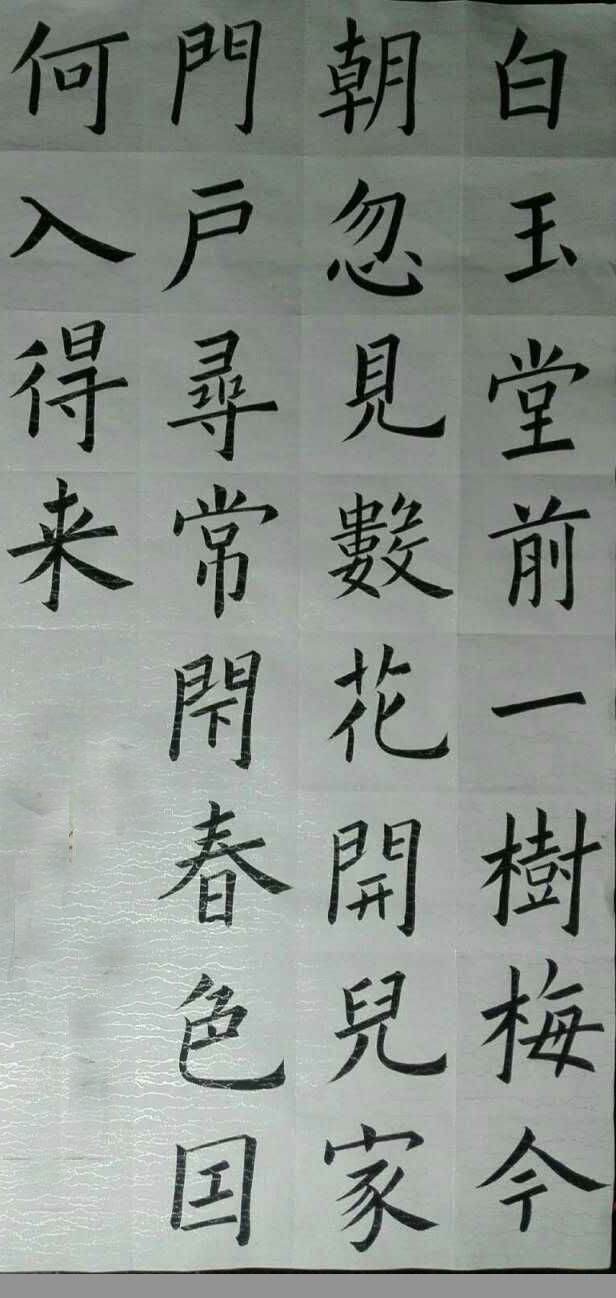 白玉堂前一樹梅今
朝忽見數花開兒家
門戸尋常閇春色囯
何入得来